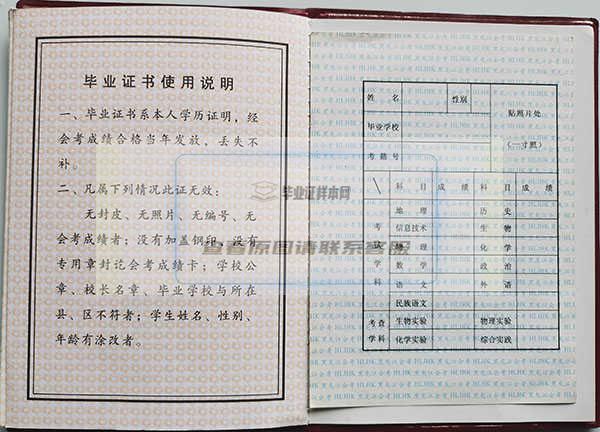 毕业证书使用说明
一、毕业证书系本人学历证明，经
会考成绩合格当年发放，丢失不
补。
二、凡属下列情况此证无效：
无封皮、无照片、无编号、无
会考成绩者；没有加盖钢印、没有
专用章封讫会考成绩卡；学校公
章、校长名章、毕业学校与所在
县、区不符者；学生姓名、性别、
年龄有涂改者。
毕业证样本网
查看原图请联系客服
姓 名 性别 贴照片处
毕业学校 （一寸照）
考籍号
科目 成绩 科目 成绩
地理 历史
信息技术 生物
物理 化学
数学 政治
语文 外语
民族语文
考试学科
考查 生物实验 物理实验
学科 化学实验 综合实践
HLJHK 黑龙江会考